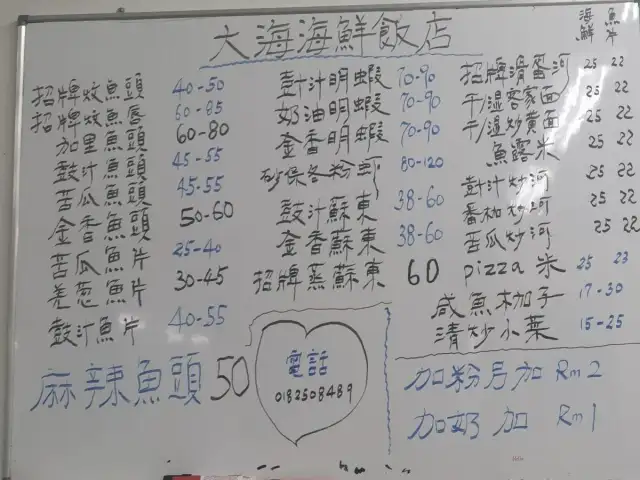 大海海鮮飯店
海鮮 魚片
招牌炆魚頭 40-50
招牌炆魚唇 60-85
加里魚頭 60-80
鼓汁魚頭 45-55
苦瓜魚頭 45-55
金香魚頭 50-60
苦瓜魚片 25-40
羌葱魚片 30-45
鼓汁魚片 40-55
麻辣魚頭 50
豉汁明蝦 70-90
奶油明蝦 70-90
金香明蝦 70-90
砂保冬粉虾 80-120
鼓汁蘇東 38-60
金香蘇東 38-60
招牌蒸蘇東 60
電話
0182508489
招牌滑蛋河 25 22
干/湿客家面 25 22
干/湿炒黄面 25 22
魚露米 25 22
豉汁炒河 25 22
番茄炒河 25 22
苦瓜炒河 25 22
pizza米 25 23
咸魚茄子 17-30
清炒小菜 15-25
加粉另加 Rm2
加奶 加 Rm1